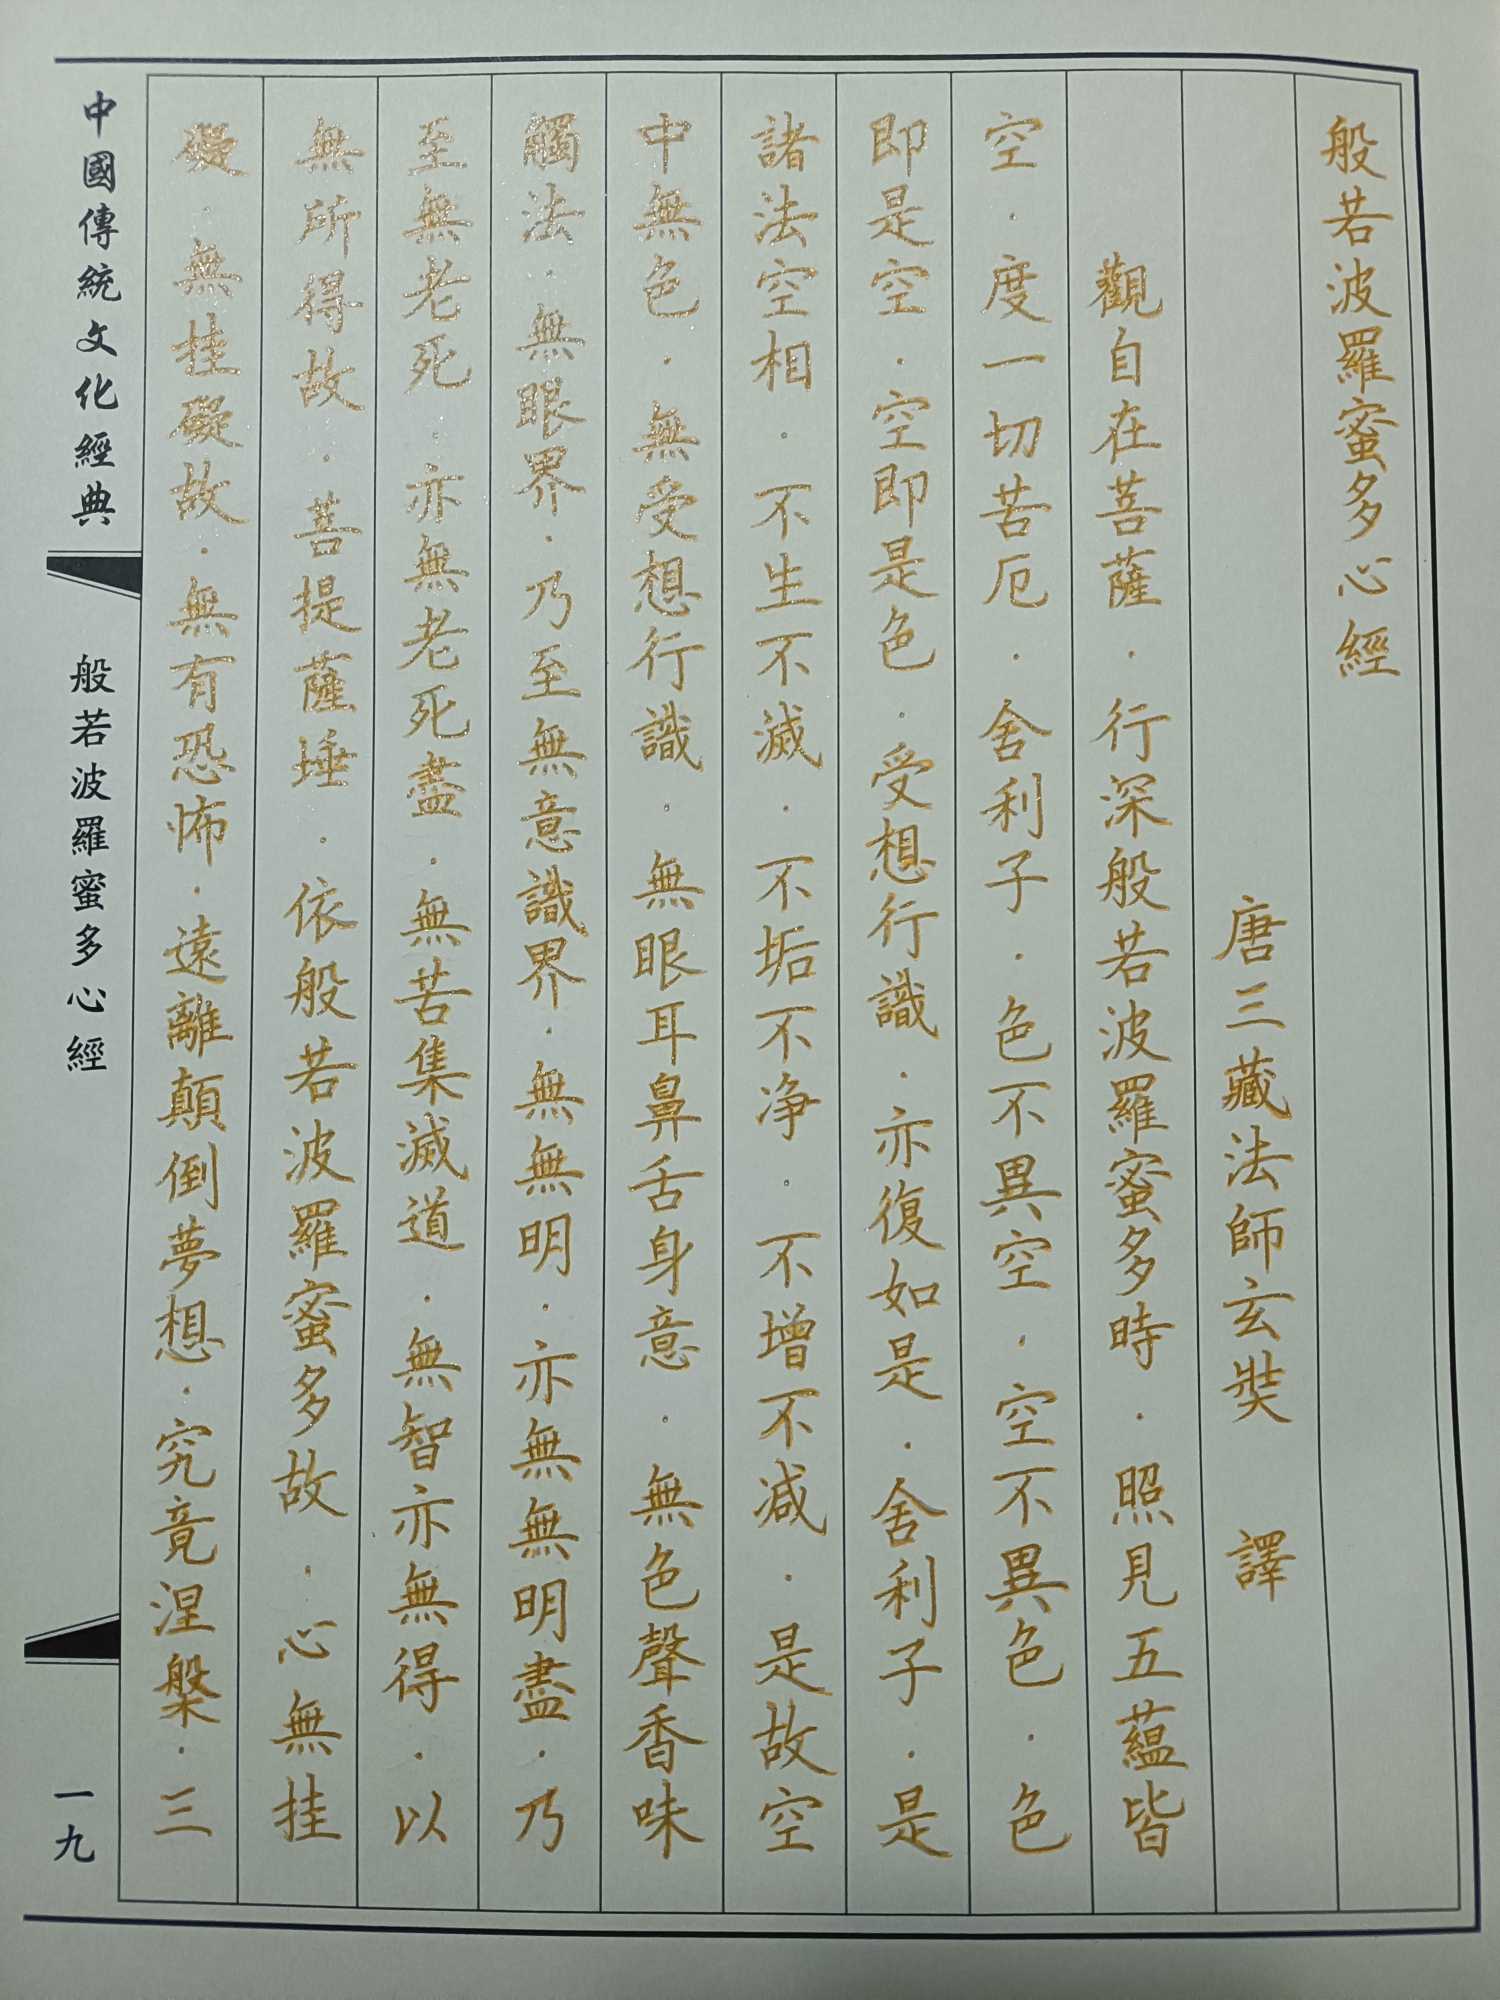 般若波羅蜜多心經
唐三藏法師玄奘 譯
觀自在菩薩．行深般若波羅蜜多時．照見五蘊皆
空．度一切苦厄．舍利子．色不異空．空不異色．色
即是空．空即是色．受想行識．亦復如是．舍利子．是
諸法空相．不生不滅．不垢不净．不增不減．是故空
中無色．無受想行識．無眼耳鼻舌身意．無色聲香味
觸法．無眼界．乃至無意識界．無無明．亦無無明盡．乃
至無老死．亦無老死盡．無苦集滅道．無智亦無得．以
無所得故．菩提薩埵．依般若波羅蜜多故．心無挂
礙．無挂礙故．無有恐怖．遠離顛倒夢想．究竟涅槃．三
中國傳統文化經典
般若波羅蜜多心經
一九